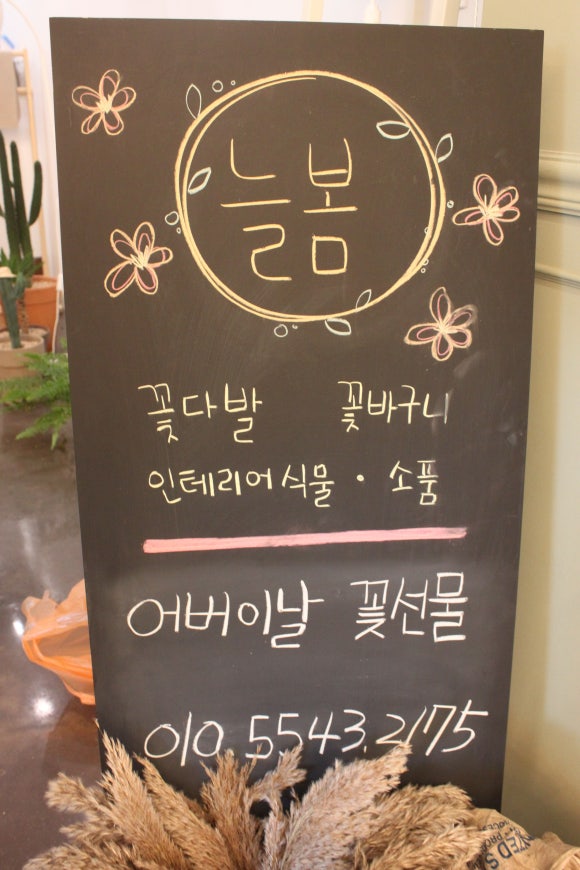 늘봄
꽃다발 꽃바구니
인테리어 식물 · 소품
어버이날 꽃선물
010.5543.2175